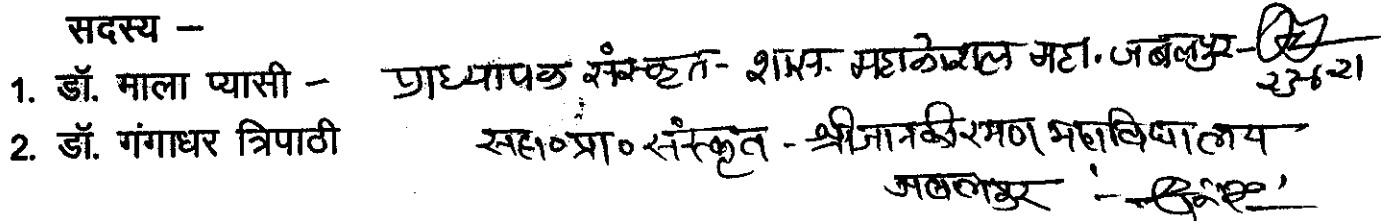 सदस्य –
1. डॉ. माला प्यासी – प्राध्यापक संस्कृत - शास. महाकोशल महा. जबलपुर -
23-6-21
2. डॉ. गंगाधर त्रिपाठी सहा० प्रा० संस्कृत - श्रीजानकीरमण महाविद्यालय
जबलपुर :-